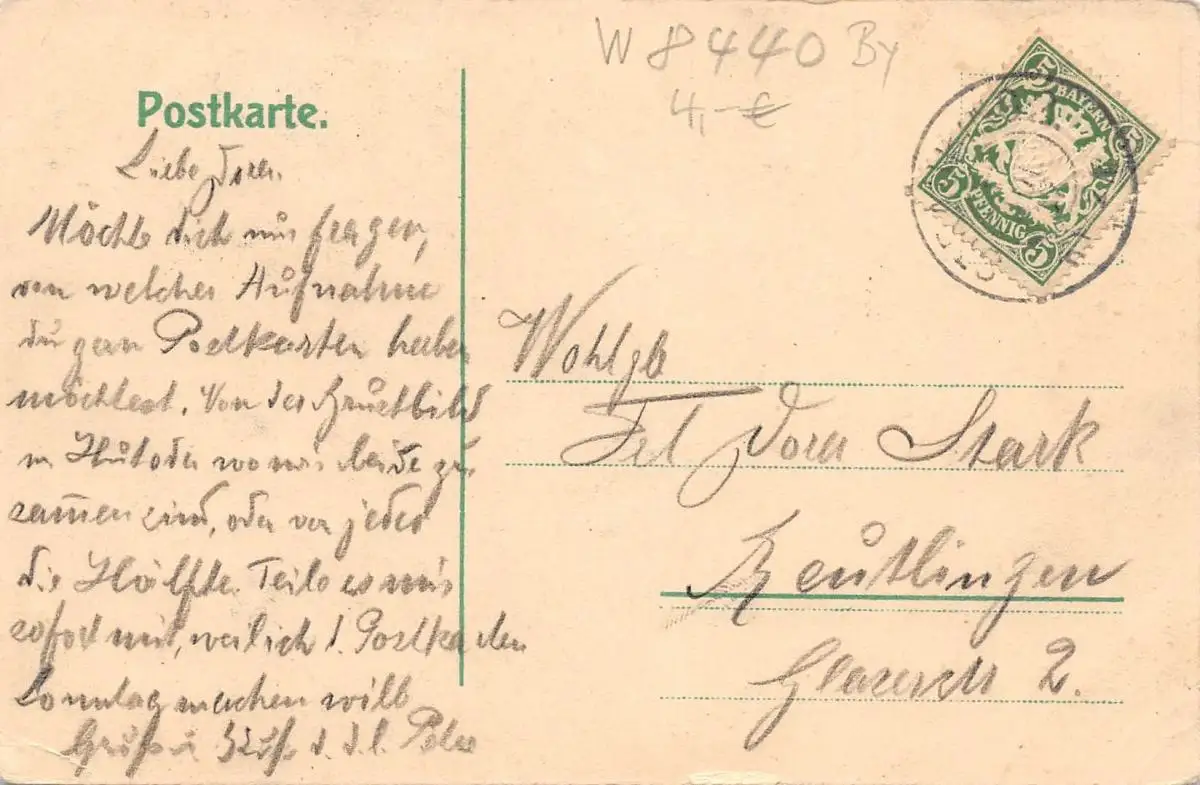 W 8440 By
4,-€
Postkarte.
BAYERN
5 5 5 5
PFENNIG
Liebe Dora.
Möchte dich nur fragen,
von welcher Aufnahme
du gern Postkarten haben
möchtest. Von der
wo wir beide zu-
sammen sind, oder von jeder
die Hälfte. Teile es mir
sofort mit, weil ich d. Postkarten
Sonntag machen will
Gruß u. Kuß d. d. l.
Wohlgb
Frl Dora Stark
Reutlingen
2.